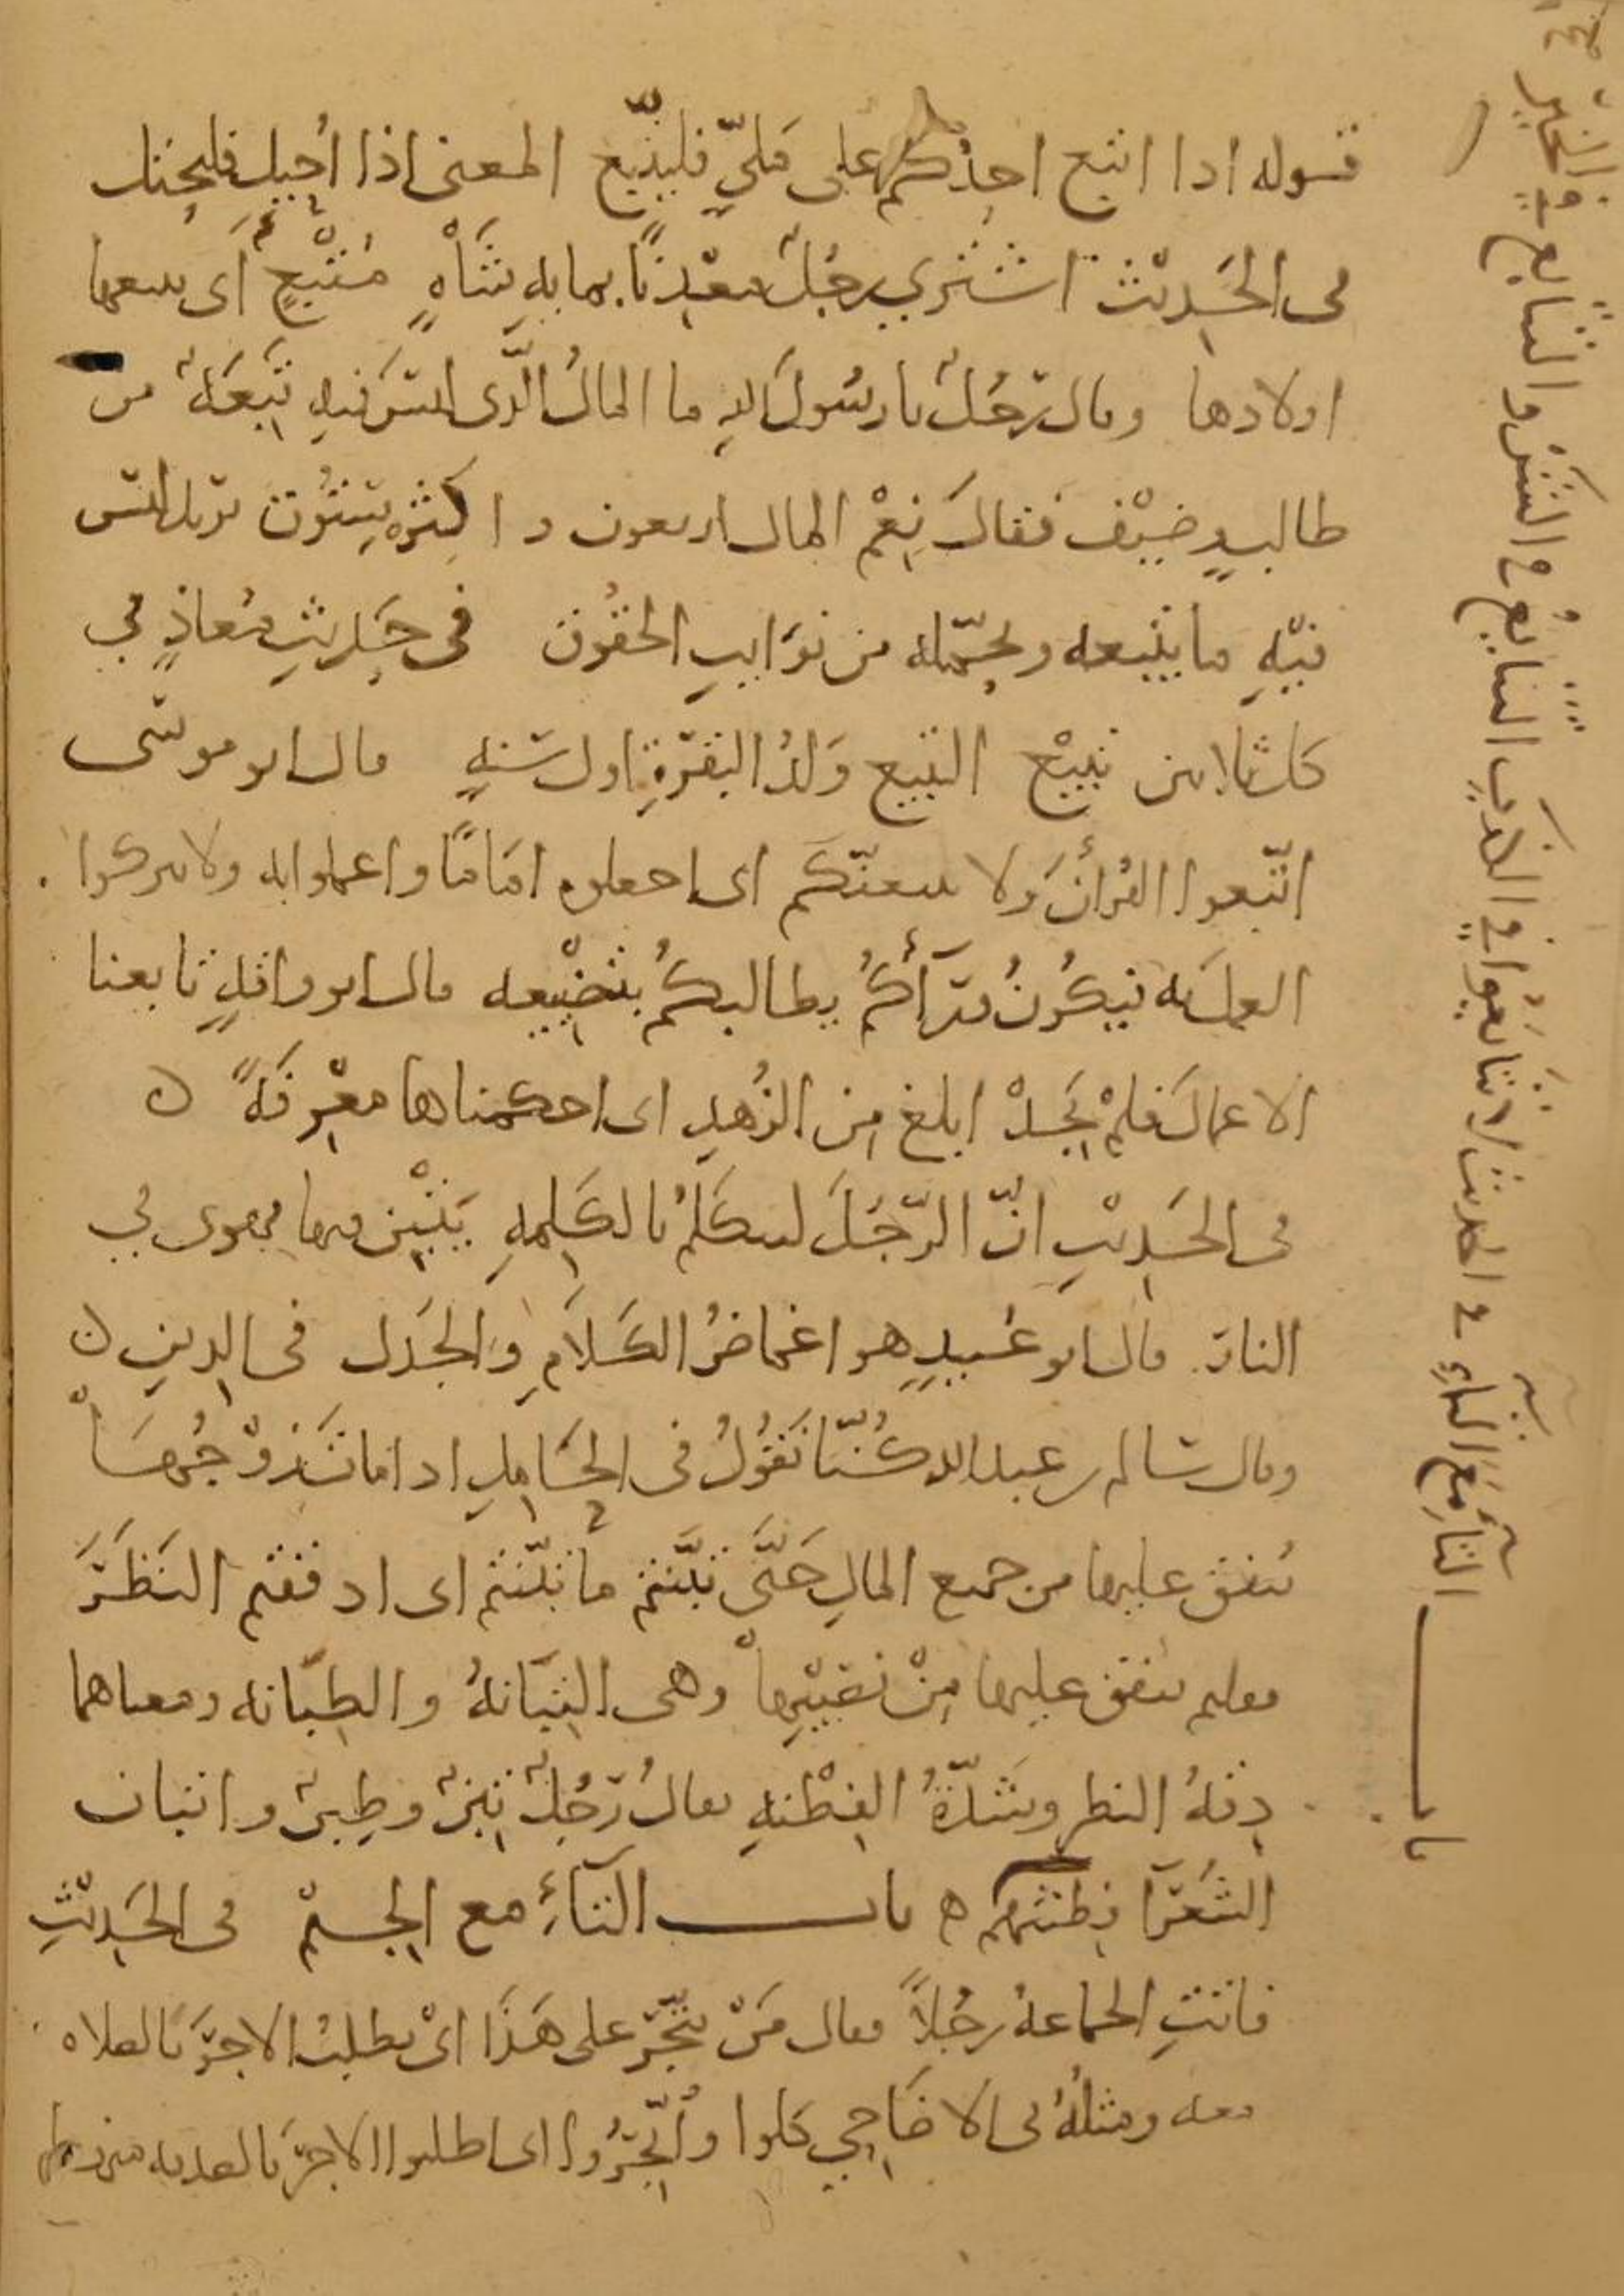 قوله اذا اتبع احدكم على مليّ فليتّبع المعنى اذا أحيل فليحتل
في الحَديْث اشترى رجُلٌ معْدِنًا بمايهِ شَاْهٍ مُتْبِعٍ أى يتبعها
اولادها وقال رَجُلٌ يا رسُولَ اللهِ ما المالُ الَّذى ليسَ فيهِ تَبِعَةٌ من
طالبٍ وضيْف فقالَ نِعْم المال اربعون والكثرُ سِتّون يريد ليس
فيْهِ ما يتبعه ويحمّله من نوَايبِ الحقُوق فى حَديثِ مُعاذٍ في
كل ثلاثين تبيْع التبيع وَلدُ البَقرَةِ اول سَنهٍ قال ابو موسَى
اتّبعوا القُرأنَ ولا يتبعنّكم اى اجعلوه امَامًا واعملوا به ولا تتركوا
العمل به فيكُونُ ورَآءكُم يطالبكُم بتضْييعه قال ابو واقدٍ تابعنا
الاعمالَ فلمْ نَجدْ ابلغ مِن الزُهدِ اى احكمناها معْرِفَةً ه
فى الحَديثِ انّ الرّجُلَ ليتكلمُ بالكَلِمهِ يَتْبِن فيها يهوى في
النار قال ابو عُبيدٍ هو اغماضُ الكَلاَمِ والجَدَل فى الدين ه
وقال سالم بن عبد الله كُنّا نَقُولُ فى الحَامِلِ اذا مات زوْجُهَا
يُنفق عليها من جميع المالِ حَتَّى تبّنتم ما تبّنتم اى ادققتم النَظَرَ
فقلتم ينفق عليها مِنْ نصيْبِها وهى التَبَانَةُ والطبَانه ومعناهما
دِقةُ النظر وشدّةُ الفِطْنهِ يقالُ رَجُلٌ تَبِنٌ وطَبِنٌ واتبان
الشعَرآ فِطنتهم ه باب التآءِ مع الجيم فى الحَديْثِ
فاتتِ الجماعهُ رجُلاً فقال مَنْ يتّجّر على هَذَا اىْ يطلبُ الاجرَ بالصلاه
معه ومثلُهُ فى الاضَاحِي كلوا واتّجِرُوا اى اطلبوا الاجرَ بالصدقه
باب التآءِ مَعَ اليآءِ في الحديث لا تتَايَعُوا في الكذبِ التتايُعُ في الشَرِّ والتتابع في الخير